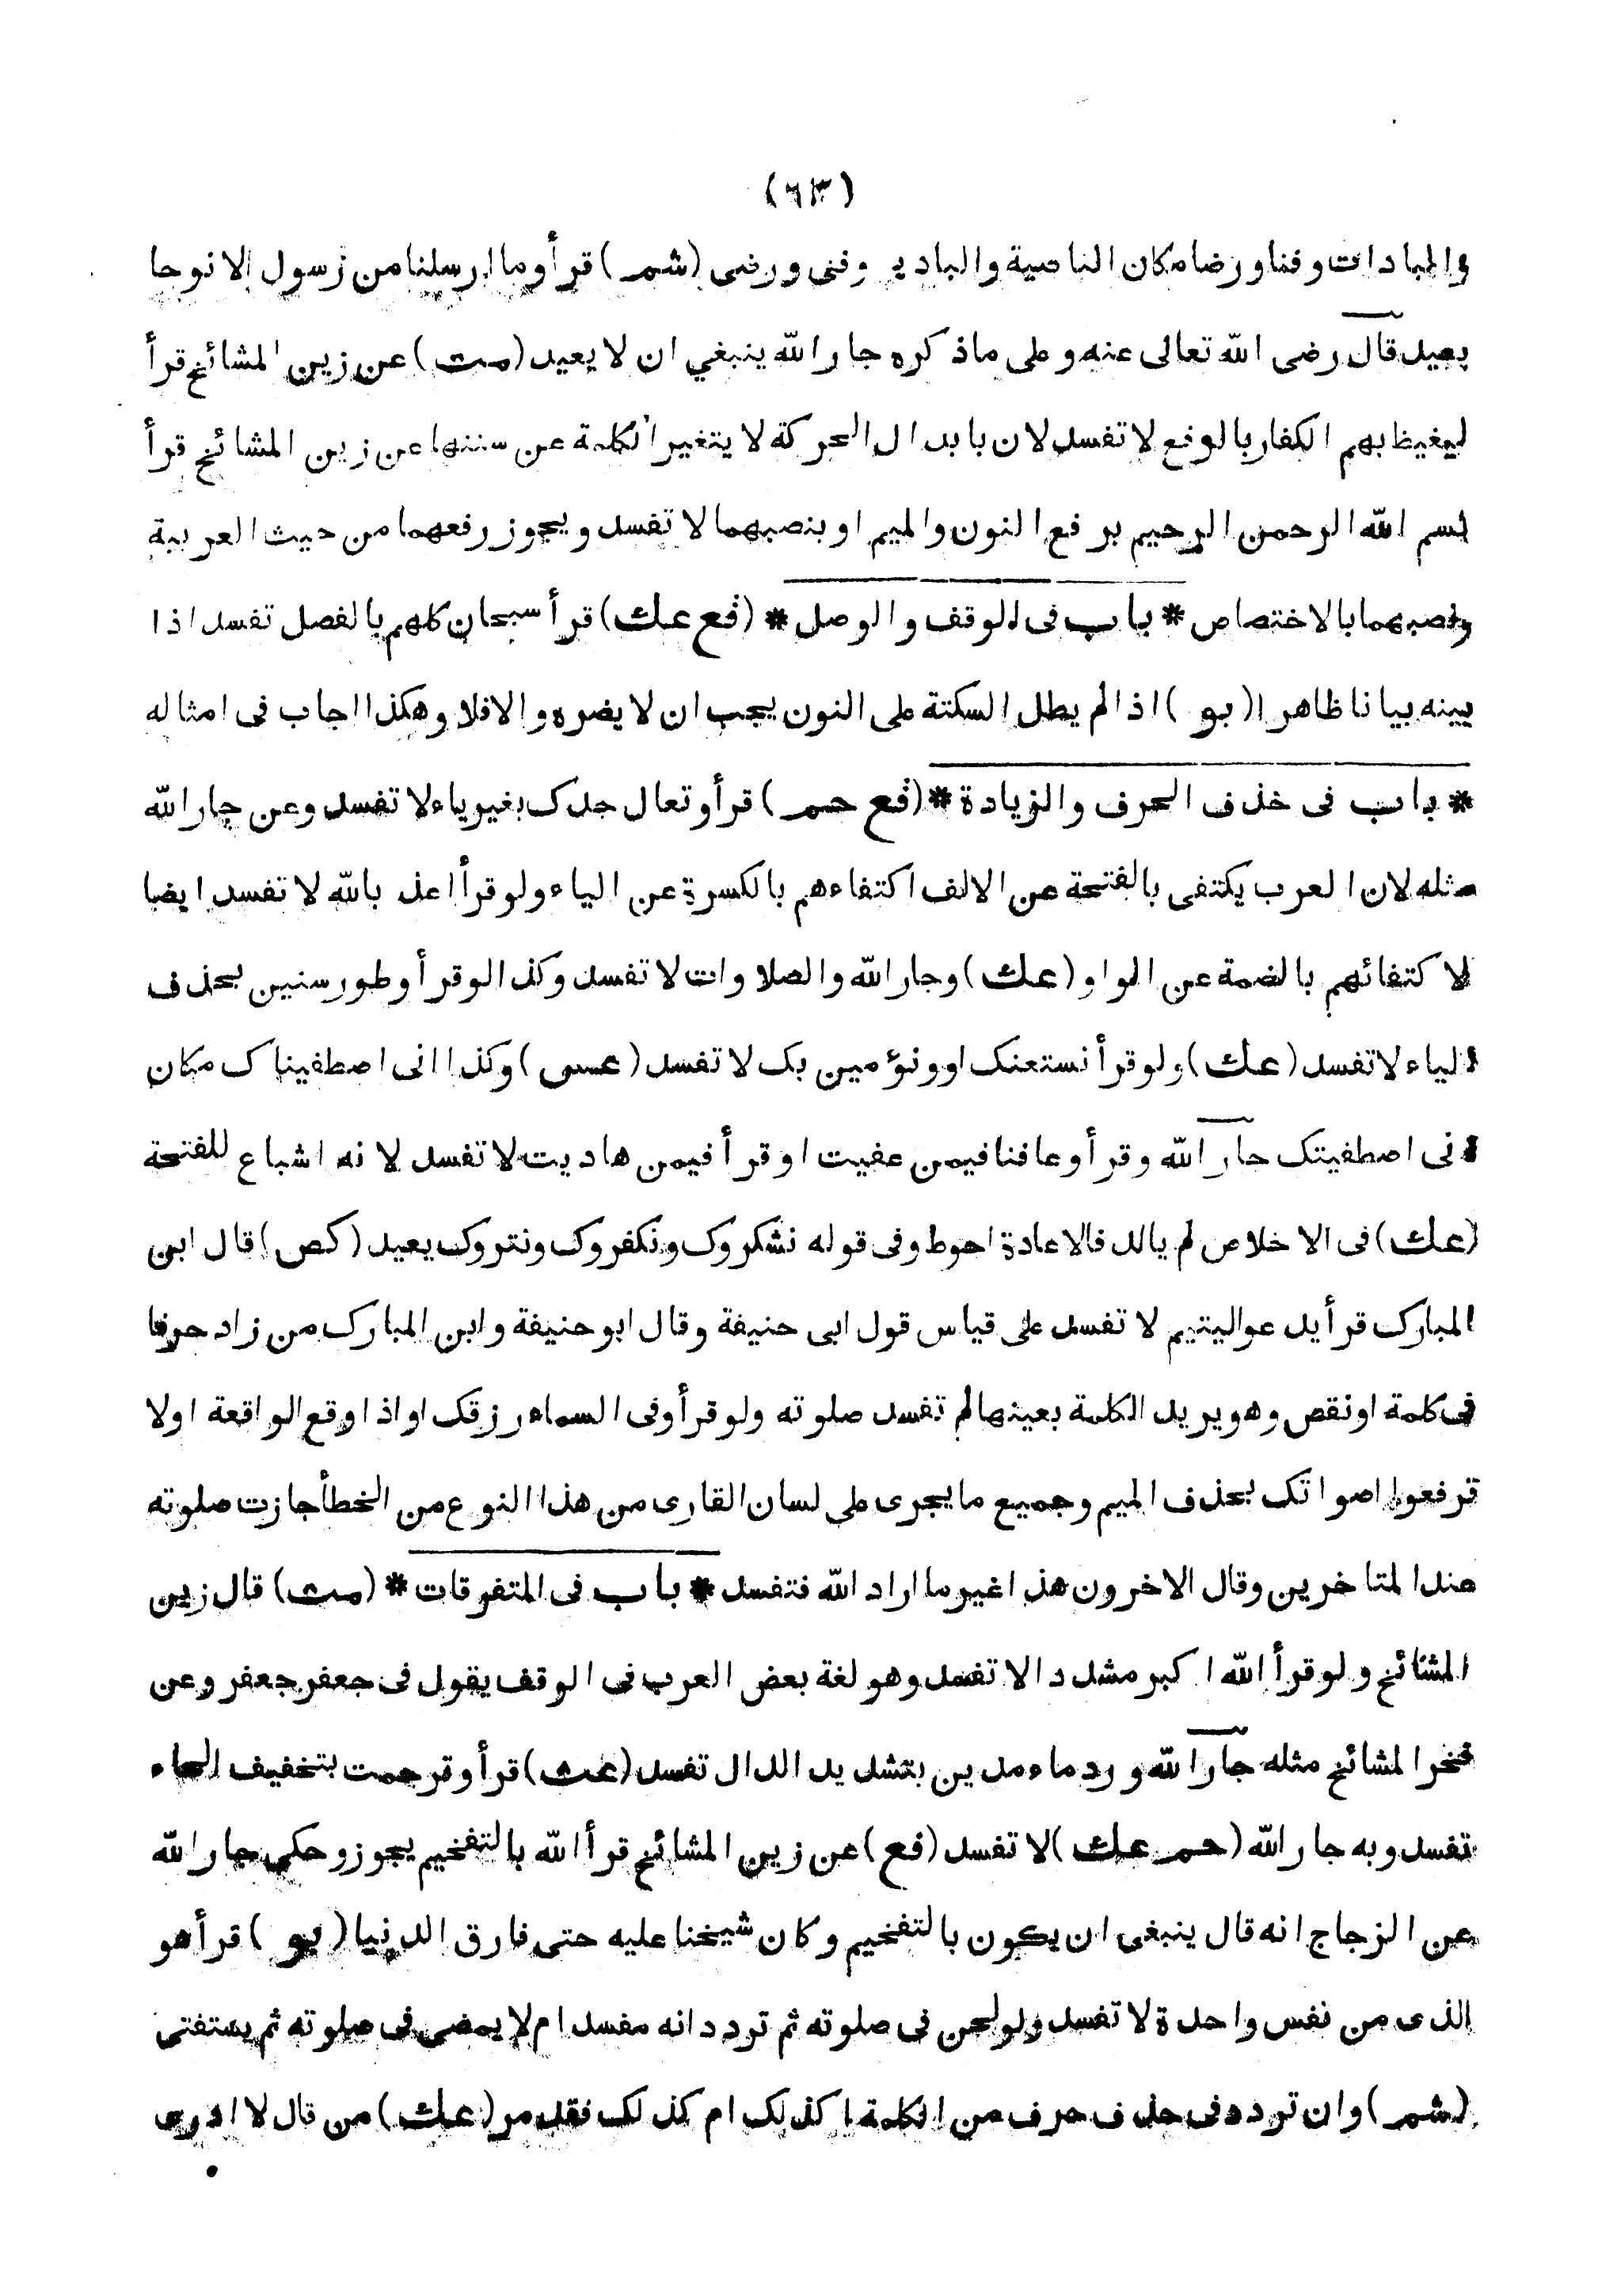 (٦٣)
والبادات وفنا ورضا مكان الناصية والبادية وفنى ورضى (شمر) قرأ وما ارسلنا من رسول الا نوحا
يعيد قال رضى الله تعالى عنه وعلى ما ذكره جار الله ينبغي ان لا يعيد (مت) عن زين المشائخ قرأ
ليغيظ بهم الكفار بالرفع لا تفسد لان بابدال الحركة لا يتغير الكلمة عن سننها عن زين المشائخ قرأ
بسم الله الرحمن الرحيم برفع النون والميم او بنصبهما لا تفسد ويجوز رفعهما من حيث العربية
ونصبهما بالاختصاص * باب فى الوقف والوصل * (فع عك) قرأ سبحان كلهم بالفصل تفسد اذا
بينه بيانا ظاهرا (بو) اذا لم يطل السكتة على النون يجب ان لا يضره والا فلا وهكذا اجاب فى امثاله
* باب فى حذف الحرف والزيادة * (فع حمر) قرأ وتعال جدك بغير ياء لا تفسد وعن جار الله
مثله لان العرب يكتفى بالفتحة عن الالف اكتفاءهم بالكسرة عن الياء ولو قرأ اعذ بالله لا تفسد ايضا
لاكتفائهم بالضمة عن الواو (عك) وجار الله والصلاوات لا تفسد وكذا لو قرأ وطور سنين بحذف
الياء لا تفسد (عك) ولو قرأ نستعنك او ونؤمين بك لا تفسد (عس) وكذا انى اصطفيناك مكان
انى اصطفيتك جار الله وقرأ وعافنا فيمن عفيت او قرأ فيمن هاديت لا تفسد لانه اشباع للفتحة
(عك) فى الاخلاص لم يالد فالاعادة احوط وفى قوله نشكروك ونكفروك ونتروك يعيد (كص) قال ابن
المبارك قرأ يدعو اليتيم لا تفسد على قياس قول ابى حنيفة وقال ابو حنيفة وابن المبارك من زاد حرفا
فى كلمة او نقص وهو يريد الكلمة بعينها لم تفسد صلوته ولو قرأ وفى السماء رزقك او اذا وقع الواقعة او لا
ترفعوا اصواتك بحذف الميم وجميع ما يجرى على لسان القارى من هذا النوع من الخطأ جازت صلوته
عند المتاخرين وقال الاخرون هذا غير ما اراد الله فتفسد * باب فى المتفرقات * (مت) قال زين
المشائخ ولو قرأ الله اكبر مشددا لا تفسد وهو لغة بعض العرب فى الوقف يقول فى جعفر جعفر وعن
فخر المشائخ مثله جار الله ورد ماء مدين بتشديد الدال تفسد (عث) قرأ وترحمت بتخفيف الحاء
تفسد وبه جار الله (حمر عك) لا تفسد (فع) عن زين المشائخ قرأ الله بالتفخيم يجوز وحكى جار الله
عن الزجاج انه قال ينبغى ان يكون بالتفخيم وكان شيخنا عليه حتى فارق الدنيا (بو) قرأ هو
الذى من نفس واحدة لا تفسد ولو لحن فى صلوته ثم تردد انه مفسد ام لا يمضى فى صلوته ثم يستفتى
(شمر) وان تردد فى حذف حرف من الكلمة اكذلك ام كذلك فقد مر (عك) من قال لا ادرى